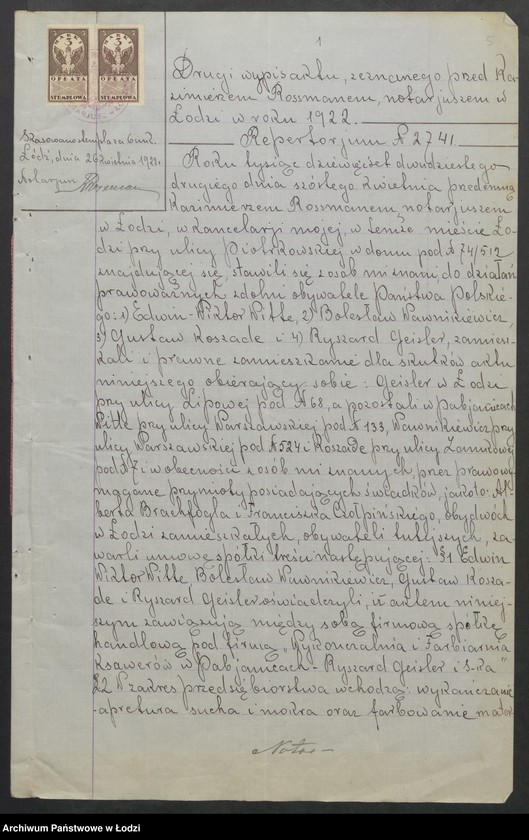 1
5
OPŁATA
STEMPLOWA
OPŁATA
STEMPLOWA
Skasowano stempla za 6 mk.
Łódź, dnia 26 kwietnia 1922 r.
Notarjusz
Drugi wypis aktu, zeznanego przed Ka-
zimierzem Rossmanem, notarjuszem w
Łodzi w roku 1922.
Repertorjum № 2741.
Roku tysiąc dziewięćset dwudziestego
drugiego dnia szóstego kwietnia przede mną
Kazimierzem Rossmanem, notarjuszem
w Łodzi, w kancelarji mojej, w temże mieście Ło-
dzi przy ulicy Piotrkowskiej w domu pod № 74/512
znajdującej się, stawili się z osób mi znani, do działań
prawoważnych zdolni obywatele Państwa Polskie-
go: 1) Edwin-Wiktor Witte, 2) Bolesław Wawnikiewicz,
3) Gustaw Koszade i 4) Ryszard Geisler, zamiesz-
kali i prawne zamieszkanie dla skutków aktu
niniejszego obierający sobie: Geisler w Łodzi
przy ulicy Lipowej pod № 68, a pozostali w Pabjanicach
Witte przy ulicy Warszawskiej pod № 133, Wawnikiewicz przy
ulicy Warszawskiej pod № 524 i Koszade przy ulicy Zamkowej
pod № 7 i w obecności z osób mi znanych, przez prawo wy-
magane przymioty posiadających świadków, jakoto: Al-
berta Brachfogla i Franciszka Czołpińskiego, obydwóch
w Łodzi zamieszkałych, obywateli tutejszych, za-
warli umowę spółki treści następującej: §1 Edwin
Wiktor Witte, Bolesław Wawnikiewicz, Gustaw Kosza-
de i Ryszard Geisler oświadczyli, iż aktem niniej-
szym zawiązują między sobą firmową spółkę
handlową pod firmą „Wykończalnia i Farbiarnia
Ksawerów w Pabjanicach - Ryszard Geisler i S-ka"
§2 W zakres przedsiębiorstwa wchodzą: wykańczanie
-apretura sucha i mokra oraz farbowanie mater-
Archiwum Państwowe w Łodzi